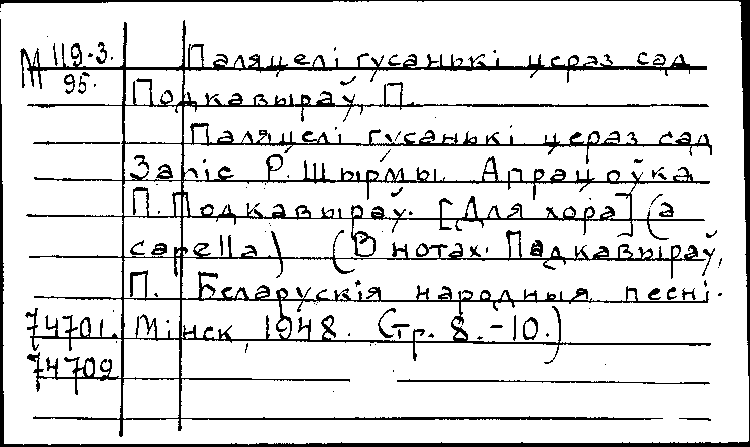 М 119-3. Паляцелі гусанькі цераз сад
95.
Подкавыраў, П.
Паляцелі гусанькі цераз сад
Запіс Р. Шырмы. Апрацоўка
П. Подкавыраў. [Для хора] (a
capella.) (В нотах: Падкавыраў,
П. Беларускія народныя песні.
74701. Мінск, 1948. Стр. 8.-10.)
74709